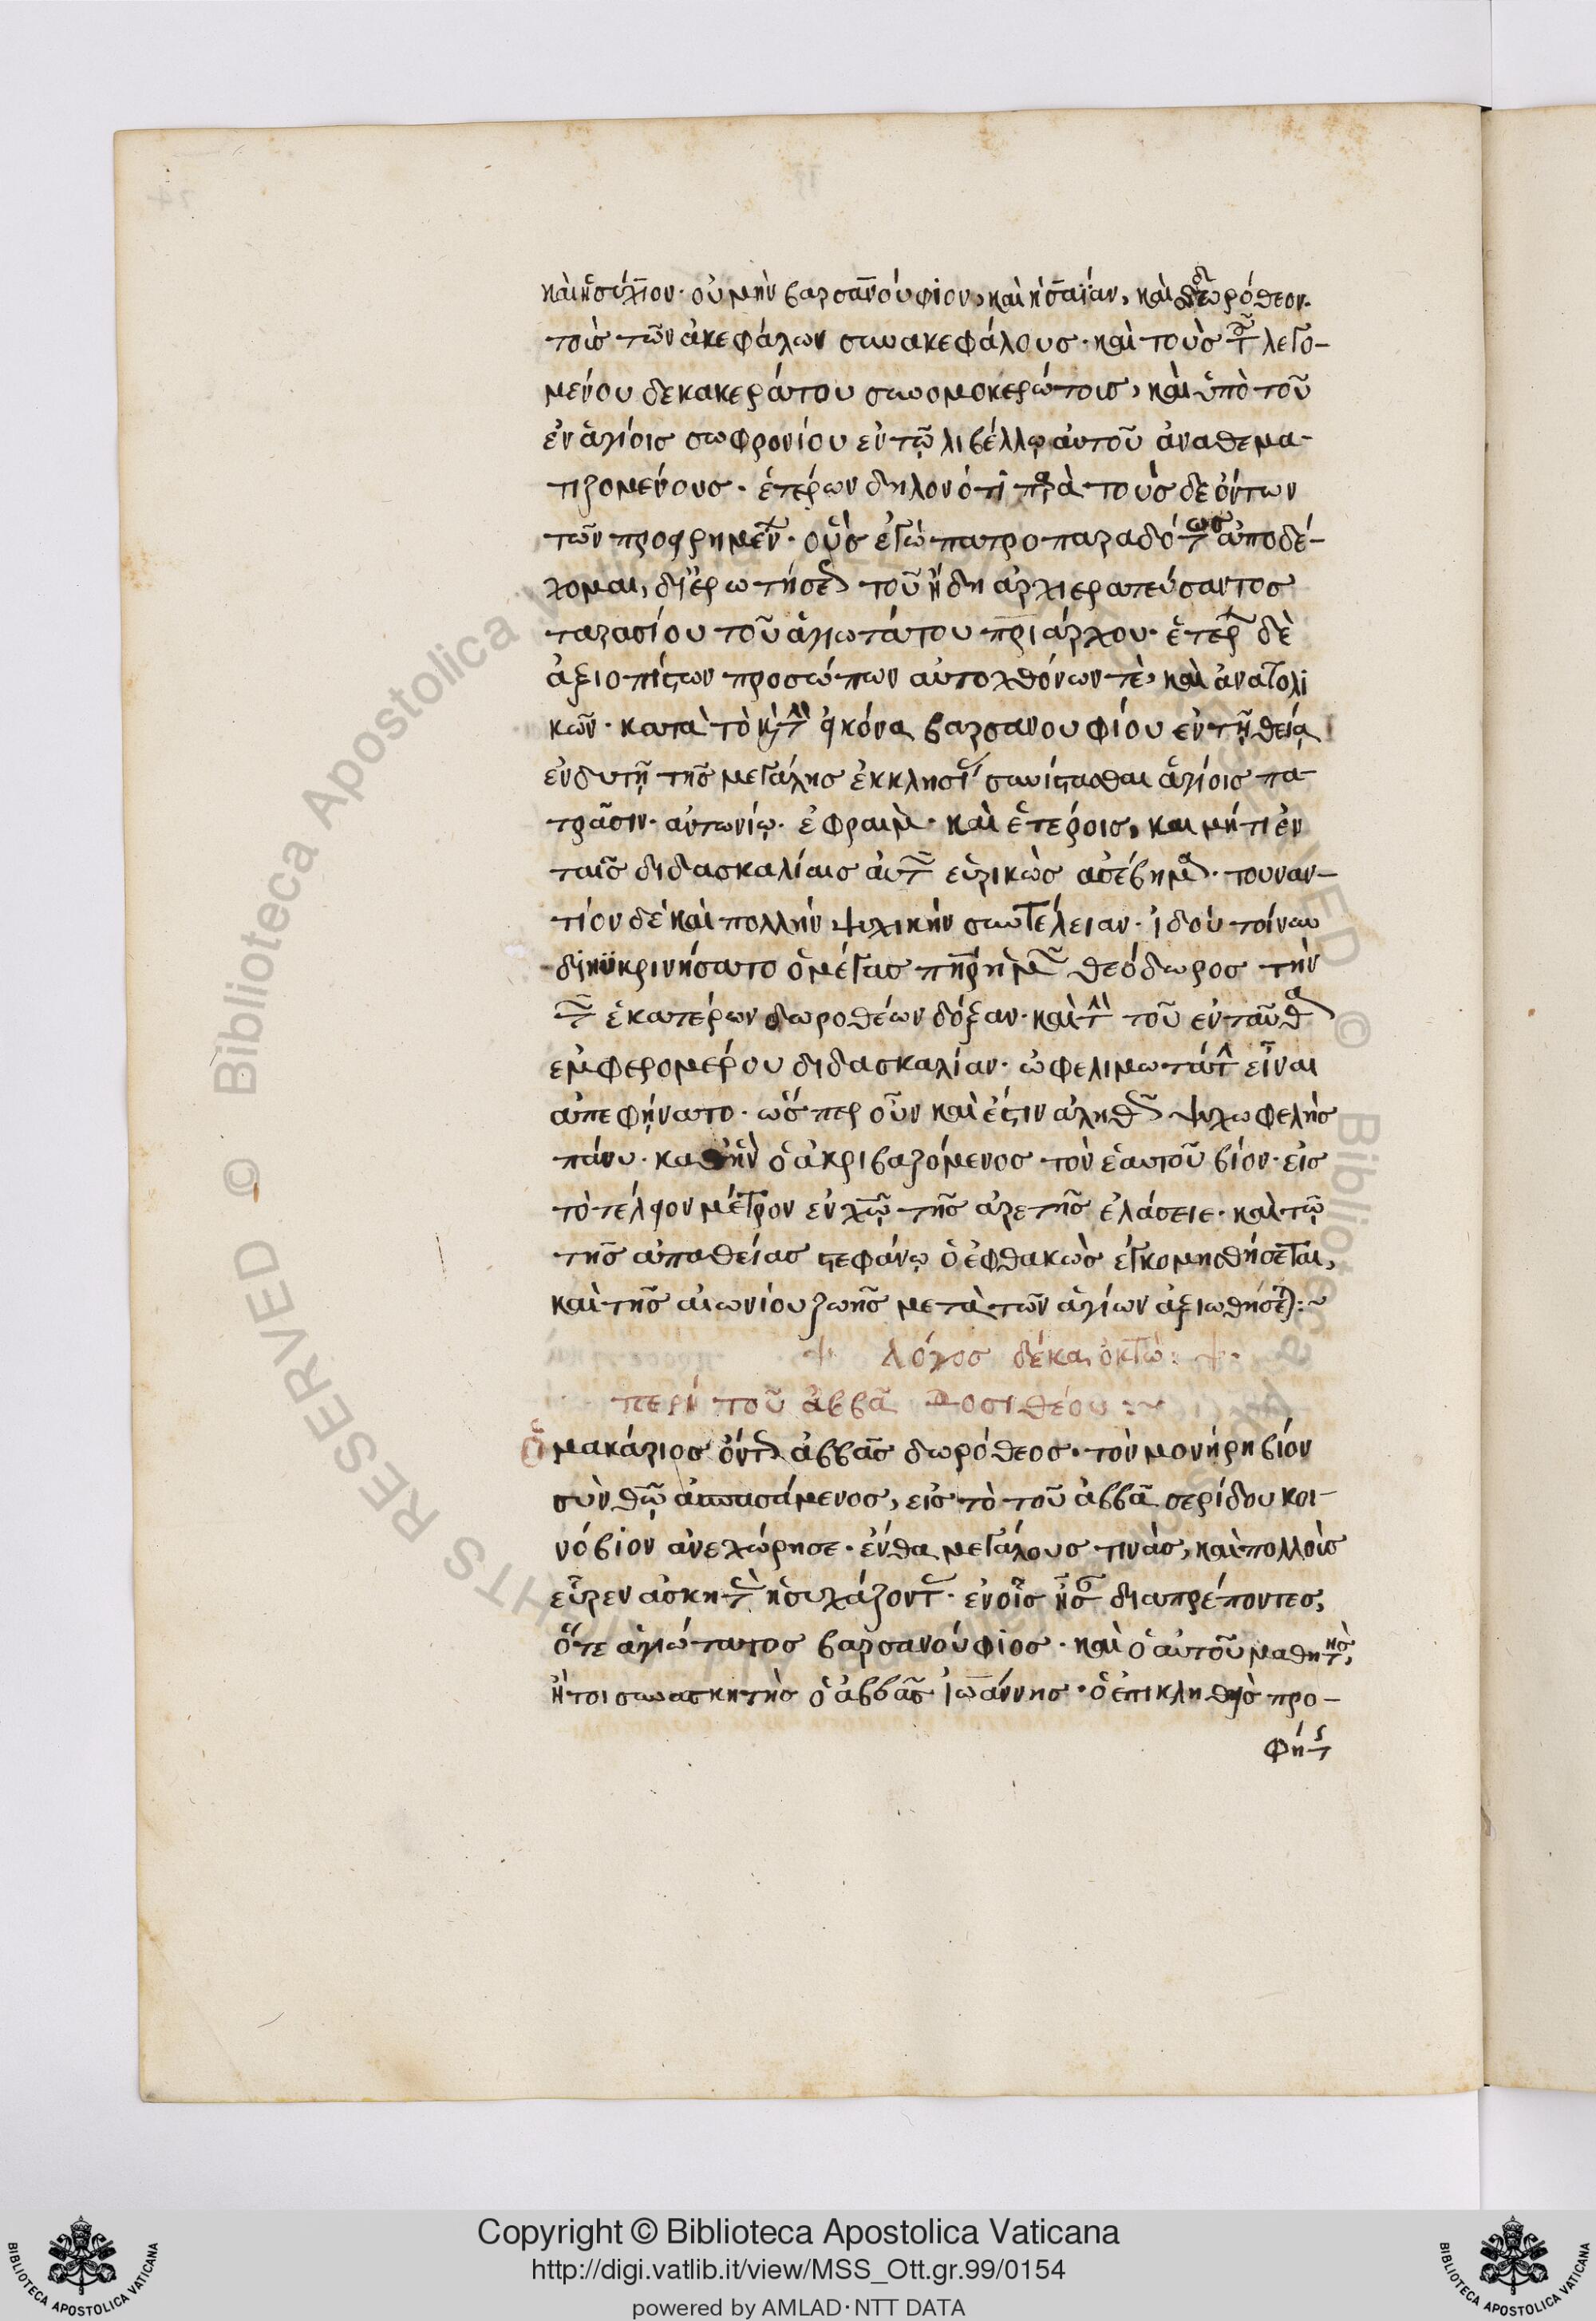 καὶ ἡσύχιον· οὐ μὴν βαρσανούφιον, καὶ ἡσαΐαν, καὶ δωρόθεον·
τοῖς τῶν ἀκεφάλων συνακεφάλους· καὶ τοὺς τοῦ λεγο-
μένου δεκακεράτου συνομοκερώτοις, καὶ ὑπὸ τοῦ
ἐν ἁγίοις σωφρονίου ἐν τῷ λιβέλλῳ αὐτοῦ ἀναθεμα-
τιζομένους· ἑτέρων δηλονότι παρὰ τοὺς δε ὄντων
τῶν προειρημένων· οὓς ἐγὼ πατροπαραδότως ἀποδέ-
χομαι, δι' ἐρωτήσεως τοῦ ἤδη ἀρχιερατεύσαντος
ταρασίου τοῦ ἁγιωτάτου πριάρχου· ἑτέρων δὲ
ἀξιοπίστων προσώπων αὐτοχθόνων τὲ, καὶ ἀνατολι
κῶν· κατὰ τὸ καὶ τὴν εἰκόνα βαρσανουφίου ἐν τῇ θείᾳ
ἐνδυτῇ τῆς μεγάλης ἐκκλησίας συνίστασθαι ἁγίοις πα-
τράσιν· ἀντωνίῳ· ἐφραὶμ· καὶ ἑτέροις, και μήτι ἐν
ταῖς διδασκαλίαις αὐτῶν εὑρικὼς ἀσέβημα· τουναν-
τίον δὲ καὶ πολλὴν ψυχικὴν συντέλειαν· ἰδοὺ τοίνυν
διηυκρινήσατο ὁ μέγας πῆρ ἡμῶν θεόδωρος τὴν
τῶν ἑκατέρων δωροθέων δόξαν· καὶ τὴν τοῦ ἐνταῦθα
ἐμφερομένου διδασκαλίαν· ὠφελιμωτάτην εἶναι
ἀπεφήνατο· ὥσπερ οὖν καὶ ἔστιν ἀληθῶς ψυχωφελὴς
πάνυ· καθ' ἣν ὁ ἀκριβαζόμενος τὸν ἑαυτοῦ βίον· εἰς
τὸ τέλειον μέτρον ἐν χῷ τῆς ἀρετῆς ἐλάσειε· καὶ τῷ
τῆς ἀπαθείας στεφάνῳ ὁ ἐφθακὼς ἐγκομηθήσεται,
καὶ τῆς αἰωνίου ζωῆς μετὰ τῶν ἁγίων ἀξιωθήσεται:~
λόγος δέκα ὀκτώ:
περὶ τοῦ ἀββᾶ Δοσιθέου:~
Ὁ μακάριος ὄντως ἀββᾶς δωρόθεος· τὸν μονήρη βίον
σὺν θῷ ἀσπασάμενος, εἰς τὸ τοῦ ἀββᾶ σερίδου κοι-
νόβιον ἀνεχώρησε· ἔνθα μεγάλους τινὰς, καὶ πολλοὺς
εὗρεν ἀσκητὰς ἡσυχάζοντας· ἐν οἷς ἦσαν διαπρέποντες,
ὅτε ἁγιώτατος βαρσανούφιος· καὶ ὁ αὐτοῦ μαθητὴς,
ἤτοι συνασκητὴς ὁ ἀββᾶς ἰωάννης· ὁ ἐπικληθεὶς προ-
φήτης